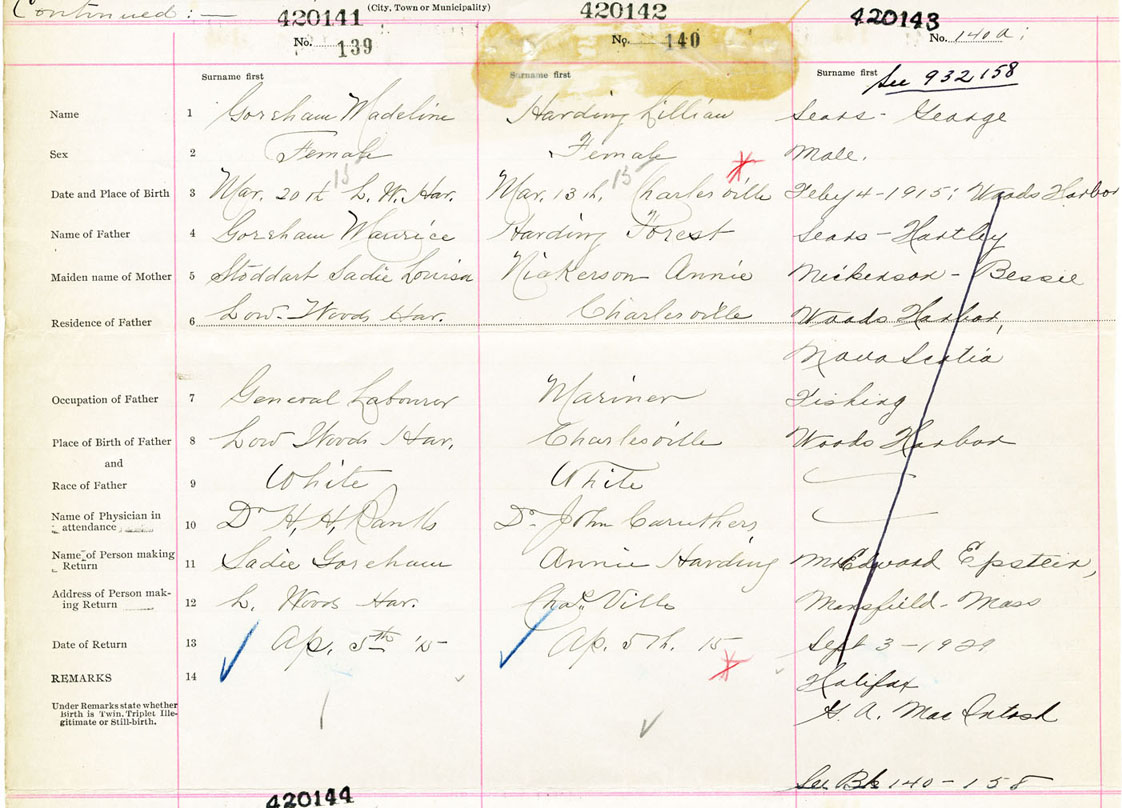 Continued :—
(City, Town or Municipality)
420141 420142 420143
No. 139 No. 140 No. 140 a ;
Surname first Surname first Surname first
See 932158
Name 1 Goreham Madeline Harding Lillian Sears - George
Sex 2 Female Female Male.
15 15
Date and Place of Birth 3 Mar. 20th L. W. Har. Mar. 13th, Charlesville Feby 4 - 1915; Woods Harbor
Name of Father 4 Goreham Maurice Harding Forest Sears - Hartley
Maiden name of Mother 5 Stoddart Sadie Louisa Nickerson Annie Nickerson - Bessie
Residence of Father 6 Low. Woods Har. Charlesville Woods Harbor,
Nova Scotia
Occupation of Father 7 General Labourer Mariner Fishing
Place of Birth of Father 8 Low Woods Har. Charlesville Woods Harbor
and
Race of Father 9 White White
Name of Physician in
attendance 10 Dr H. H. Banks Dr. John Caruthers,
Name of Person making
Return 11 Sadie Goreham Annie Harding Mrs Edward Epstein,
Address of Person mak-
ing Return 12 L. Woods Har. Chas Ville Mansfield - Mass
Date of Return 13 Ap. 5th '15 Ap. 5th. 15 Sept 3 - 1929
REMARKS 14 Halifax
Under Remarks state whether
Birth is Twin, Triplet Ille-
gitimate or Still-birth.
A. Mac Intosh
See Bk 140 - 158
420144